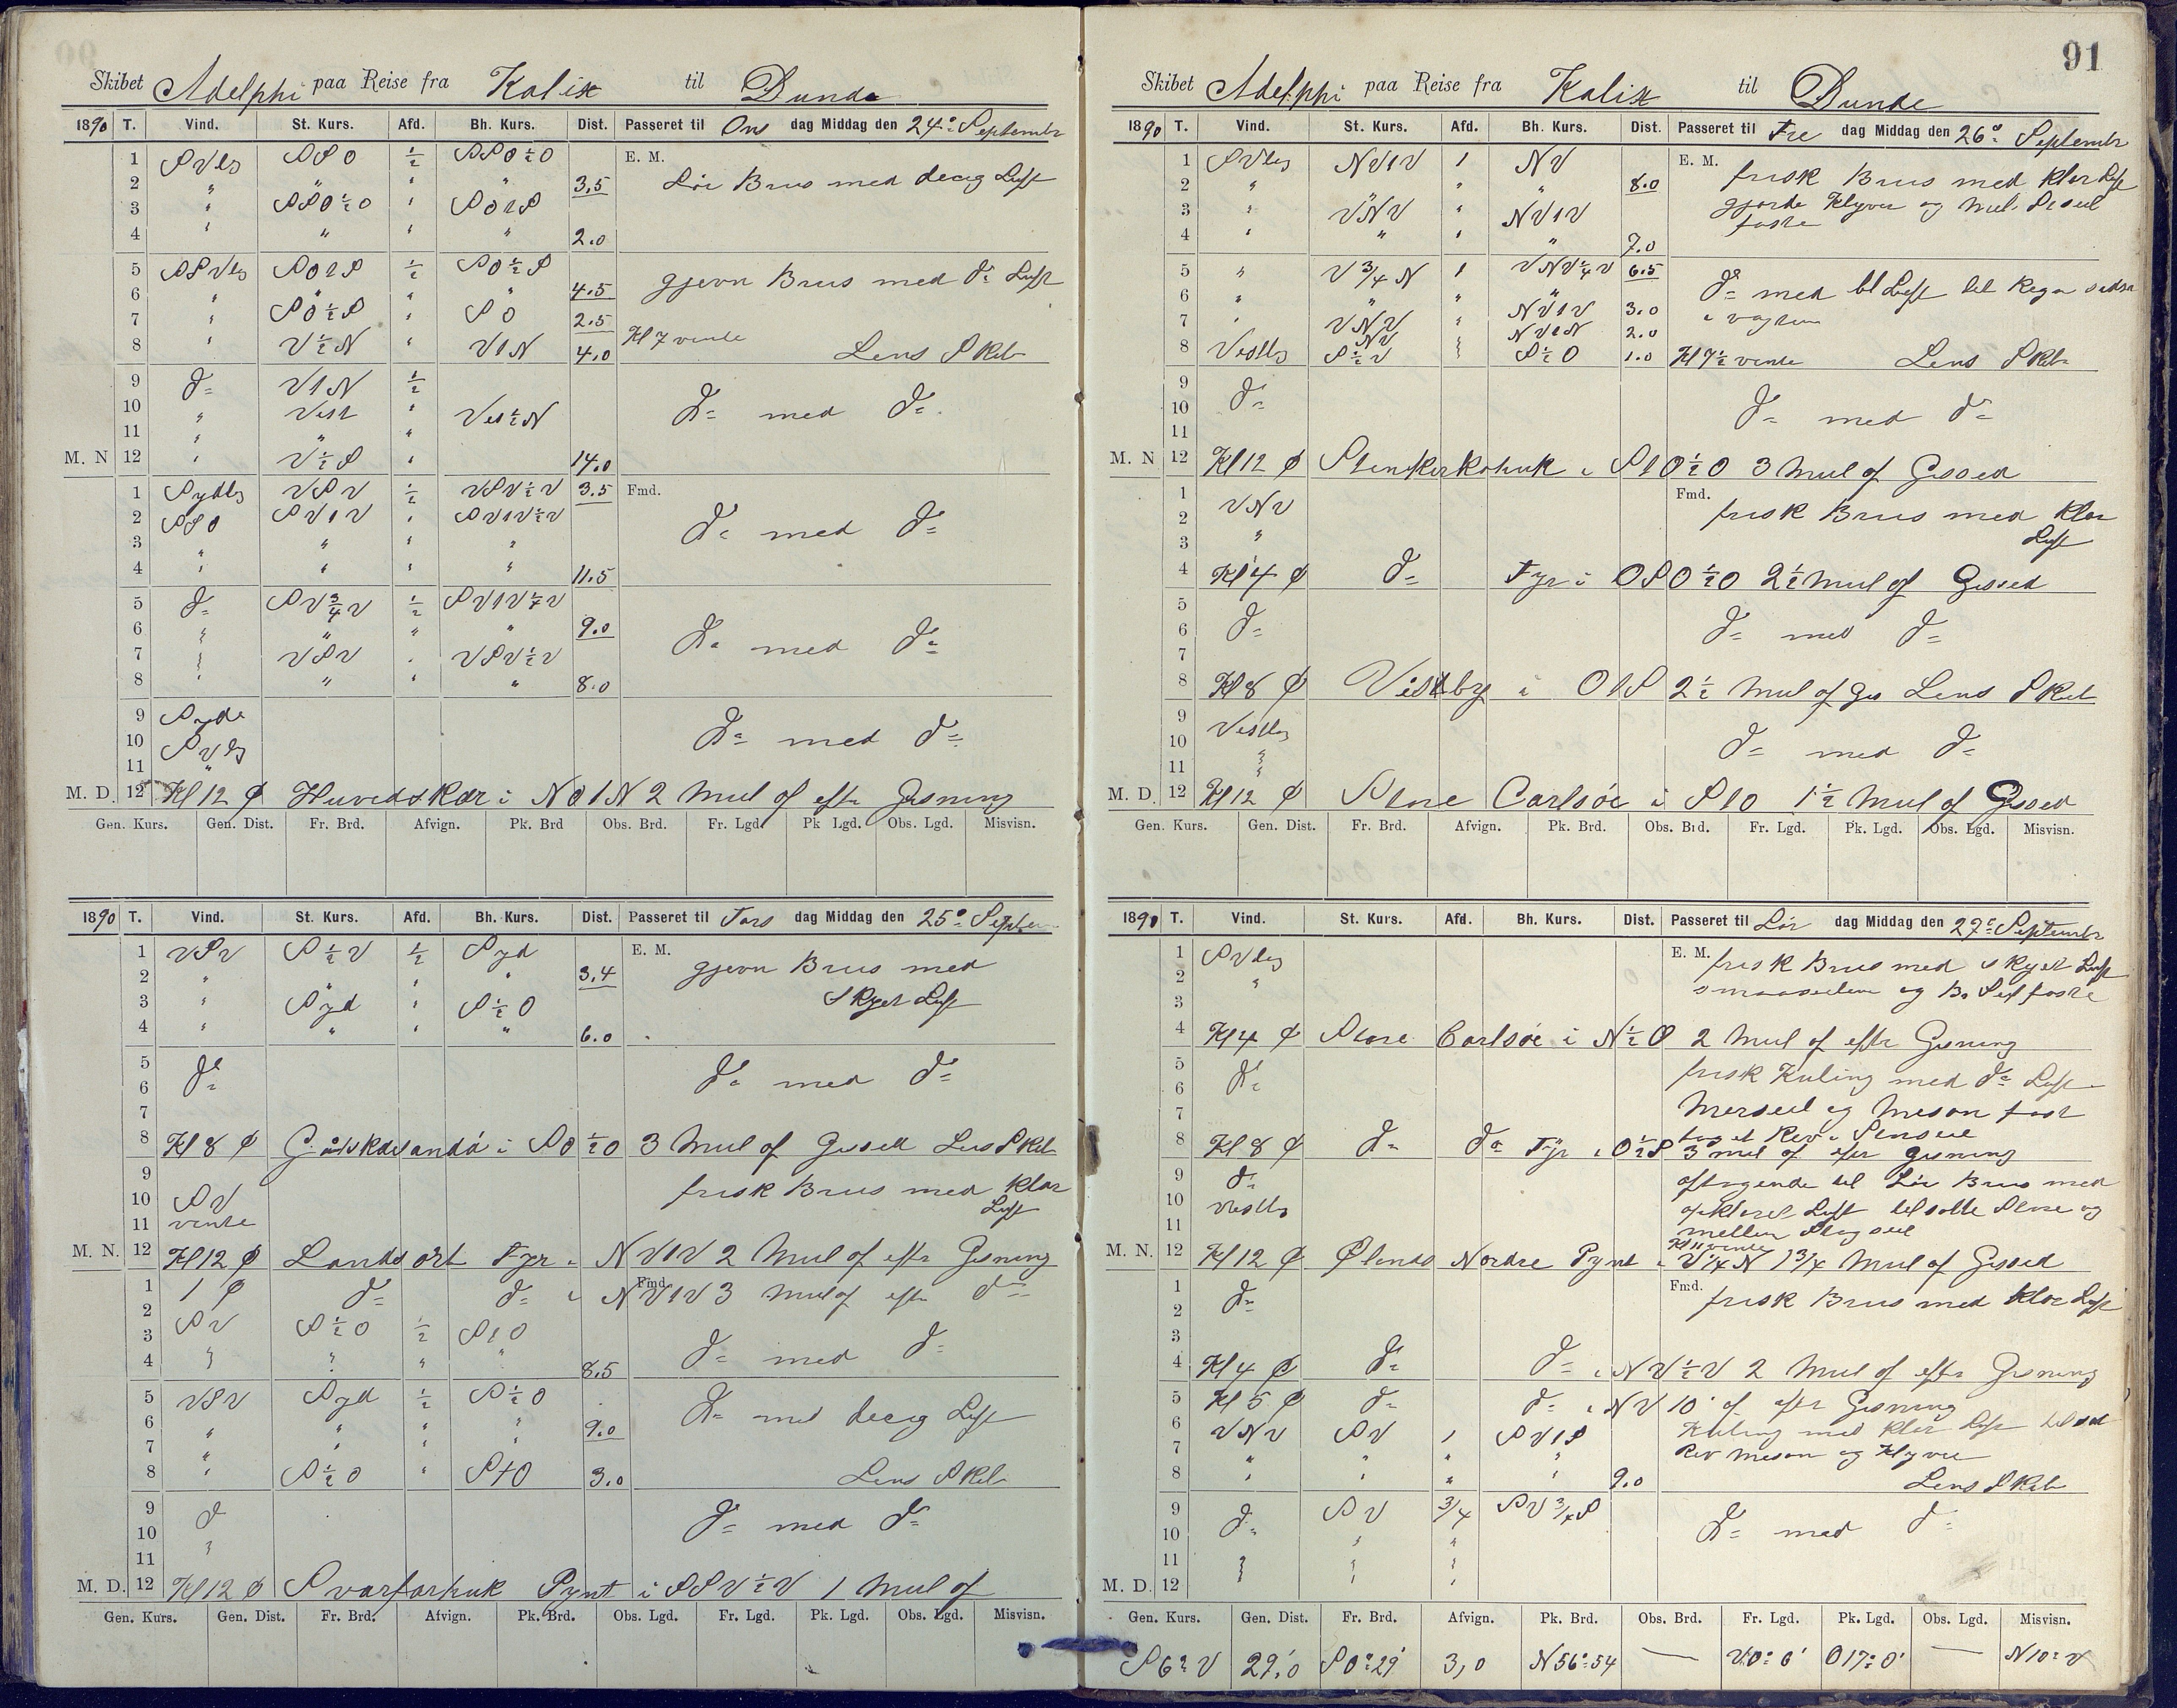 Skibet Adelphi paa Reise fra Kalix til Dunde
1890 T. Vind. St. Kurs. Afd. Bh. Kurs. Dist. Passeret til Ons dag Middag den 24de Septembr
1 SVlg SSO 1/2 SSO1/2O E. M.
2 " " " " 3.5 Lør Bris med decig Luft
3 " SSO1/2O " SO1S
4 " " " " 2.0
5 SSVlg SO1S 1/2 SO1/2S gjevn Bris med do Luft
6 " " " " 4.5
7 " SO1/2S " SO 2.5 Kl 7 vente
8 " V1/2N " V1N 4.0 Lens Skib
9 do V1N 1/2
10 " Vest " Ves1/2N do med do
11 " " "
M. N 12 " V1/2S " 14.0
1 Sydlg VSV 1/2 VSV1/2V 3.5 Fmd.
2 SSO SV1V " SV1V1/2V do med do
3 " " " "
4 " " " " 11.5
5 do SV3/4V 1/2 SV1V1/4V
6 " " " " 9.0 do med do
7 " VSV " VSV1/2V
8 " " " " 8.0
9 Syde
10 SVlg do med do
11 "
M. D. 12 Kl 12 φ Huvedskær i NO1N 2 Miil of efter Gisning
Gen. Kurs. Gen. Dist. Fr. Brd. Afvign. Pk. Brd Obs. Brd. Fr. Lgd. Pk Lgd. Obs. Lgd. Misvisn.
1890 T. Vind. St. Kurs. Afd. Bh. Kurs. Dist. Passeret til Tors dag Middag den 25de Septbr
1 VSV S1/2V 1/2 Syd E. M. gjevn Bris med
2 " " " " 3.4
3 " Syd " S1/2O Skyet Luft
4 " " " " 6.0
5
6 do do med do
7
8 Kl 8 φ i SO1/2O 3 Miil of Gisset Lens Skib
9 frisk Bris med klar
10 SV Luft
11 vente
M. N. 12 Kl 12 φ Landsort Fyr i NV1V 2 Miil of efter Gisning
1 1 φ do do i NV1V 3 Miil of efter do
Fmd.
2 SV S1/2O 1/2 S1O
3
4 " " " " 8.5 do med do
5 VSV Syd 1/2 S1/2O
6 " " " " 9.0 do med decig Luft
7 " " " "
8 " S1/2O " S1O 3.0 Lens Skib
9 do
10 " do med do
11
M. D. 12 Kl 12 φ Svarfarhuk Pynt i SSV1/2V 1 Miil of
Gen. Kurs. Gen. Dist. Fr. Brd. Afvign. Pk. Brd. Obs. Lgd. Fr. Lgd. Pk. Lgd. Obs. Lgd. Misvisn.
91
Skibet Adelphi paa Reise fra Kalix til Dunde
1890 T. Vind. St. Kurs. Afd. Bh. Kurs. Dist. Passeret til Fre dag Middag den 26de Septembr
1 SVlg NV1V 1 NV E. M. frisk Bris med klar Luft
2 " " " " 8.0 gjorde Klyver og
3 " VNV " NV1V faste
4 " " " " 7.0
5 " V3/4N 1 VNV1/4V 6.5 do med bl Luft til Regn
6 " " " NV1V 3.0 i vagten
7 " VNV " NV1N 2.0
NV
8 Vestlg S1/2V " S1/2O 1.0 Kl 7 1/2 vente Lens Skib
9
10 do do med do
11
M. N 12 Kl 12 φ Stenkirkehuk i S1O1/2O 3 Miil of Gissed
1 VNV Fmd. frisk Bris med klar
2
3 " Luft
4 Kl 4 φ do Fyr i OSO1/2O 2 1/2 Miil of Gissed
5
6 do do med do
7
8 Kl 8 φ Vistby i O1S 2 1/2 Miil of Gis Lens Skib
9 Vestlg
10 " do med do
11 "
M. D. 12 Kl 12 φ Store Carlsöe i S1O 1 1/2 Miil of Gissed
Gen. Kurs. Gen. Dist. Fr. Brd. Afvign. Pk. Brd. Obs. Brd. Fr. Lgd. Pk. Lgd. Obs. Lgd. Misvisn.
1890 T. Vind. St. Kurs. Afd. Bh. Kurs. Dist. Passeret til Lör dag Middag den 27de Septembr
1 SVlig E. M. frisk Bris med skyet Luft
2 " smaaseilene og Br Seil faste
3
4 Kl 4 φ Store Carlsöe i N1/2O 2 Miil of efter Gisning
5 frisk Kuling med do Luft
6 do
7 Merseil og Meson fast
8 Kl 8 φ do do Fyr i O1/2S 3 miil of efter Gisning
taget Rev i Storseil
9 do aftagende til Lör Bris med
10 Vestlg opklaret Luft tilsatte Store og
11 mellem Stagseil
Kl 11 vente
M. N. 12 Kl 12 φ Ølands Nordre Pynt i V1/4N 1 3/4 Miil of Gissed
1 do Fmd. frisk Bris med klar Luft
2
3
4 Kl 4 φ do do i NV1/2V 2 Miil of efter Gisning
5 Kl 5 φ do do i NV 10' of efter Gisning
6 VNV SV 1 SV1S Kuling med klar Luft
7 " " " " Rev Meson og Klyver
8 " " " " 9.0 Lens Skib
9 do SV 3/4 SV3/4S
10 " " do med do
11 " " "
M. D. 12 " "
Gen. Kurs. Gen. Dist. Fr. Brd. Afvign. Pk. Brd. Obs. Brd. Fr. Lgd. Pk. Lgd. Obs. Lgd. Misvisn.
S6°V 29.'0 S0°29' 3,0 N56°54 — V.0°6' O17°0' — N10°V